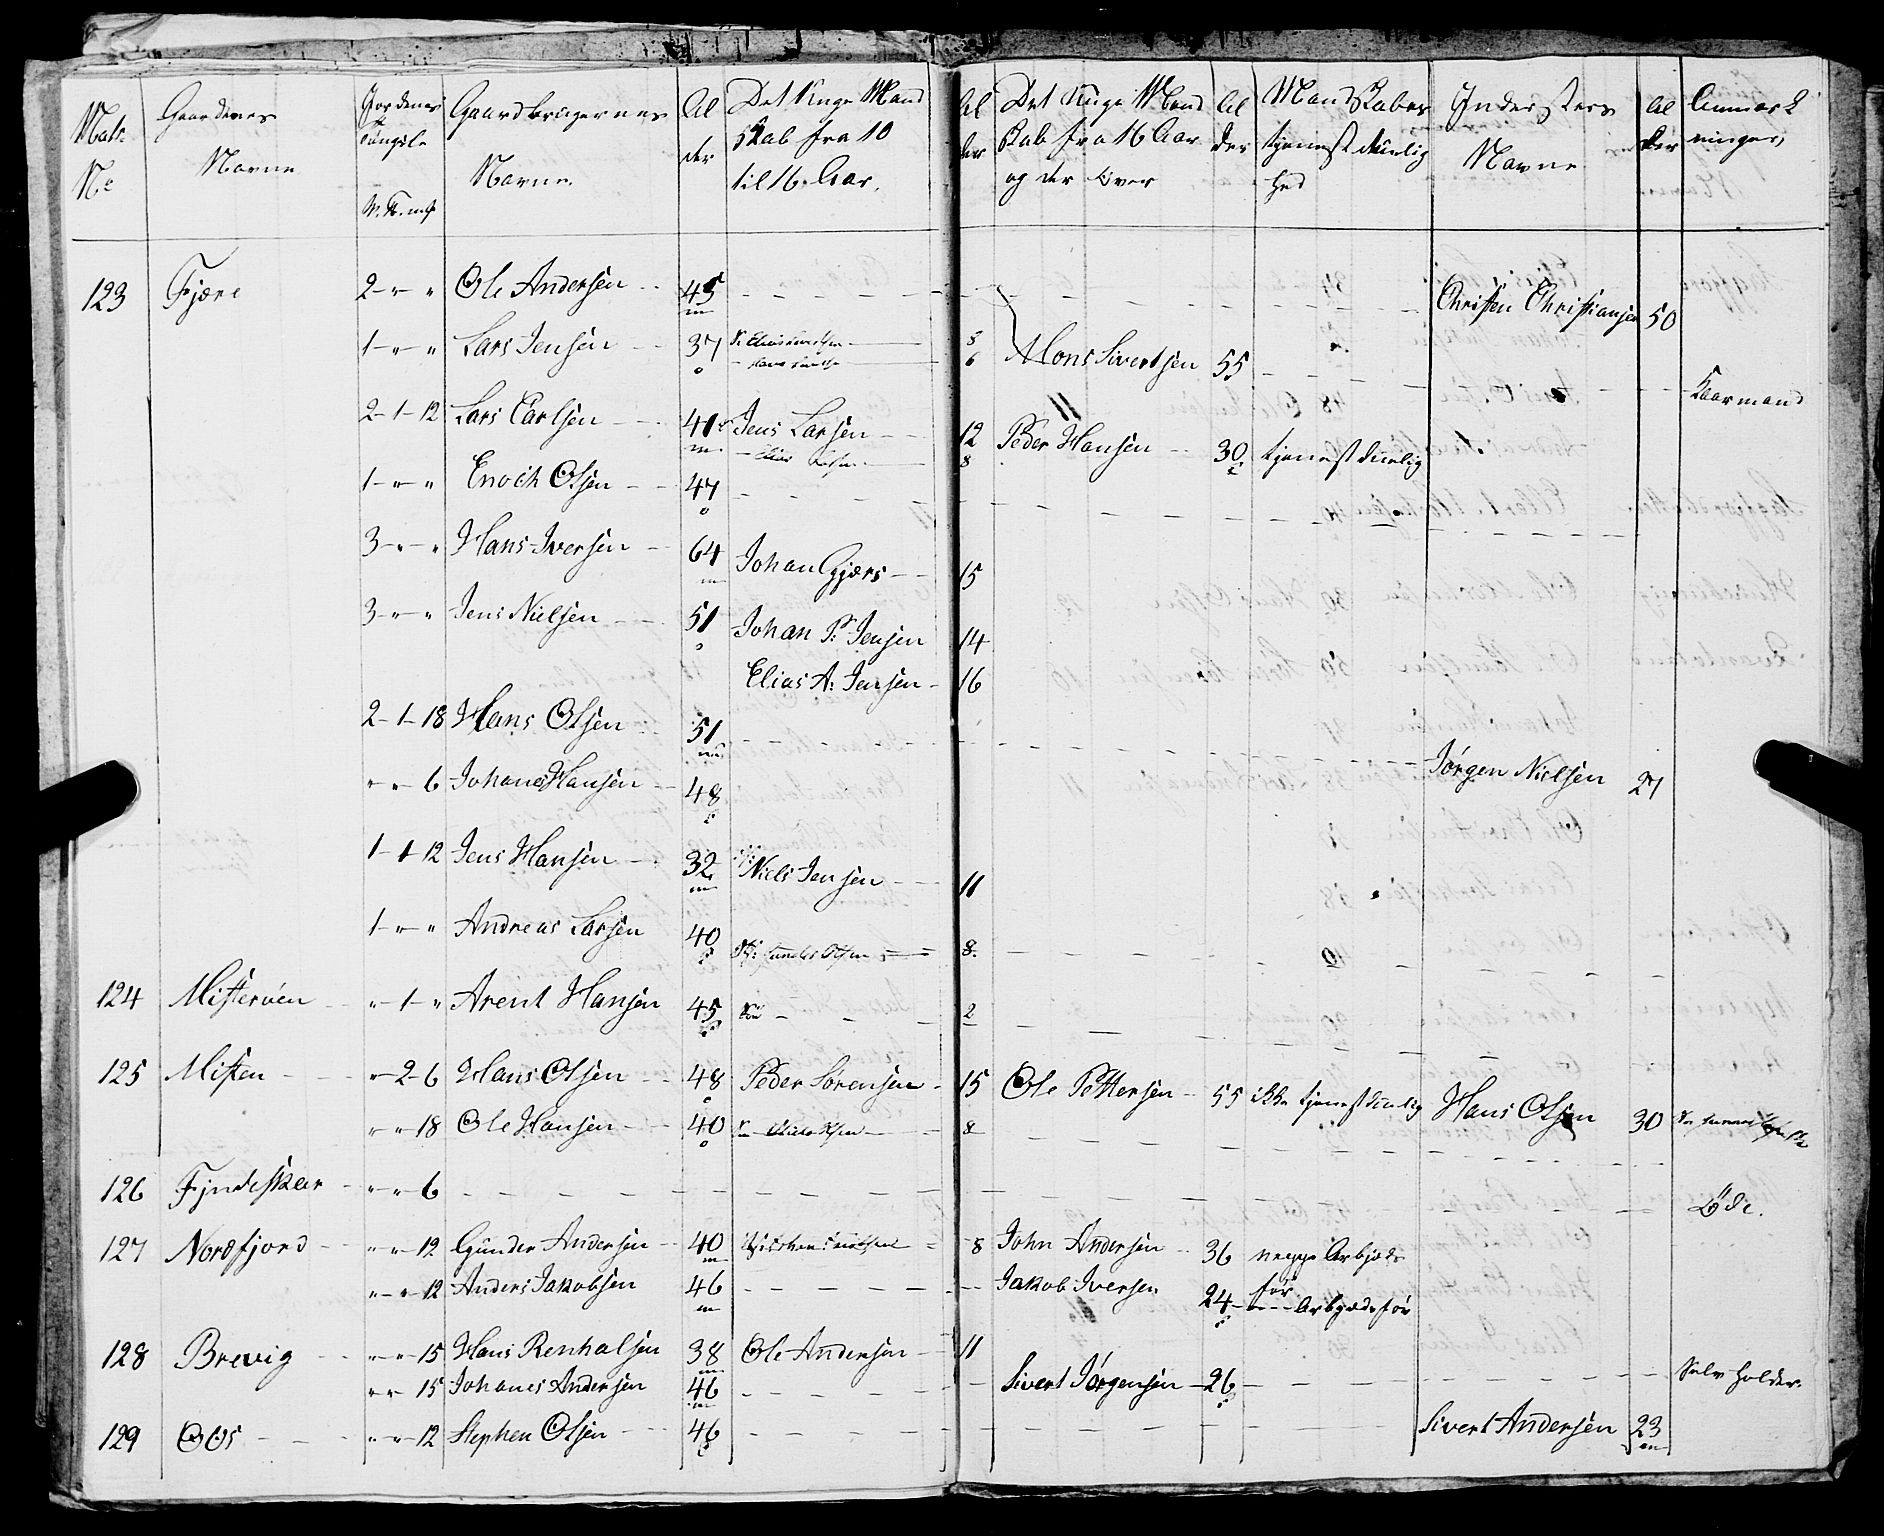 Matr: N:
Gaardenes Navne
Jordenes
W. ℔. mk
Gaardbrugernes Navne.
Al der
Det Unge Mand Skab fra 10 til 16. Aar.
Al der
Det Unge Mand Skab fra 16 Aar og der over
Al der
Mandskabes tjenestdüelig hed
Indersters Navne
Al der
Anmærk ninger,
123 Fjære 2 - " - " Ole Andersen 45 Christen Christiansen 50
1 - " - " Lars Jensen 37 8 6 Mons Sivertsen 55 Kaarmand
2 - 1 - 12 Lars Carlsen 41 Jens Larsen 12 Peder Hansen 30 tjenestdüelig
8
1 - " - " Enoch Olsen 47
3 - " - " Hans Iversen 64 Johan Gjærs 15
3 - " - " Jens Nielsen 51 Johan P: Jensen 14
Elias A: Jensen 16
2 - 1 - 18 Hans Olsen 51
Jørgen Nielsen 27
" - " 6 Johanes Hansen 48
1 - 1 12 Jens Hansen 32 Niels Jensen 11
1 - " - " Andreas Larsen 40 8
124 Misterøen " - 1 - " Arent Hansen 45 2
125 Misten " - 2 - 6 Hans Olsen 48 Peder Sørensen 15 Ole Pettersen 55 ikke tjenestdüelig Hans Olsen 30
" - " 18 Ole Hansen 40 8
126 Fyndeskar " - " 6 Øde.
127 Nordfjord " - " 12 Gunder Andersen 40 8 John Andersen 36 neppe Arbjeds för
" - " 12 Anders Jakobsen 46 Jakob Iversen 24 Arbjædsför
128 Brevig " - " 15 Hans Renhalsen 38 Ole Andersen 11
" - " 15 Johanes Andersen 46 Sivert Jørgensen 26 Selv holder.
129 Oos " - " 12 Stephen Olsen 46 Sivert Andersen 23